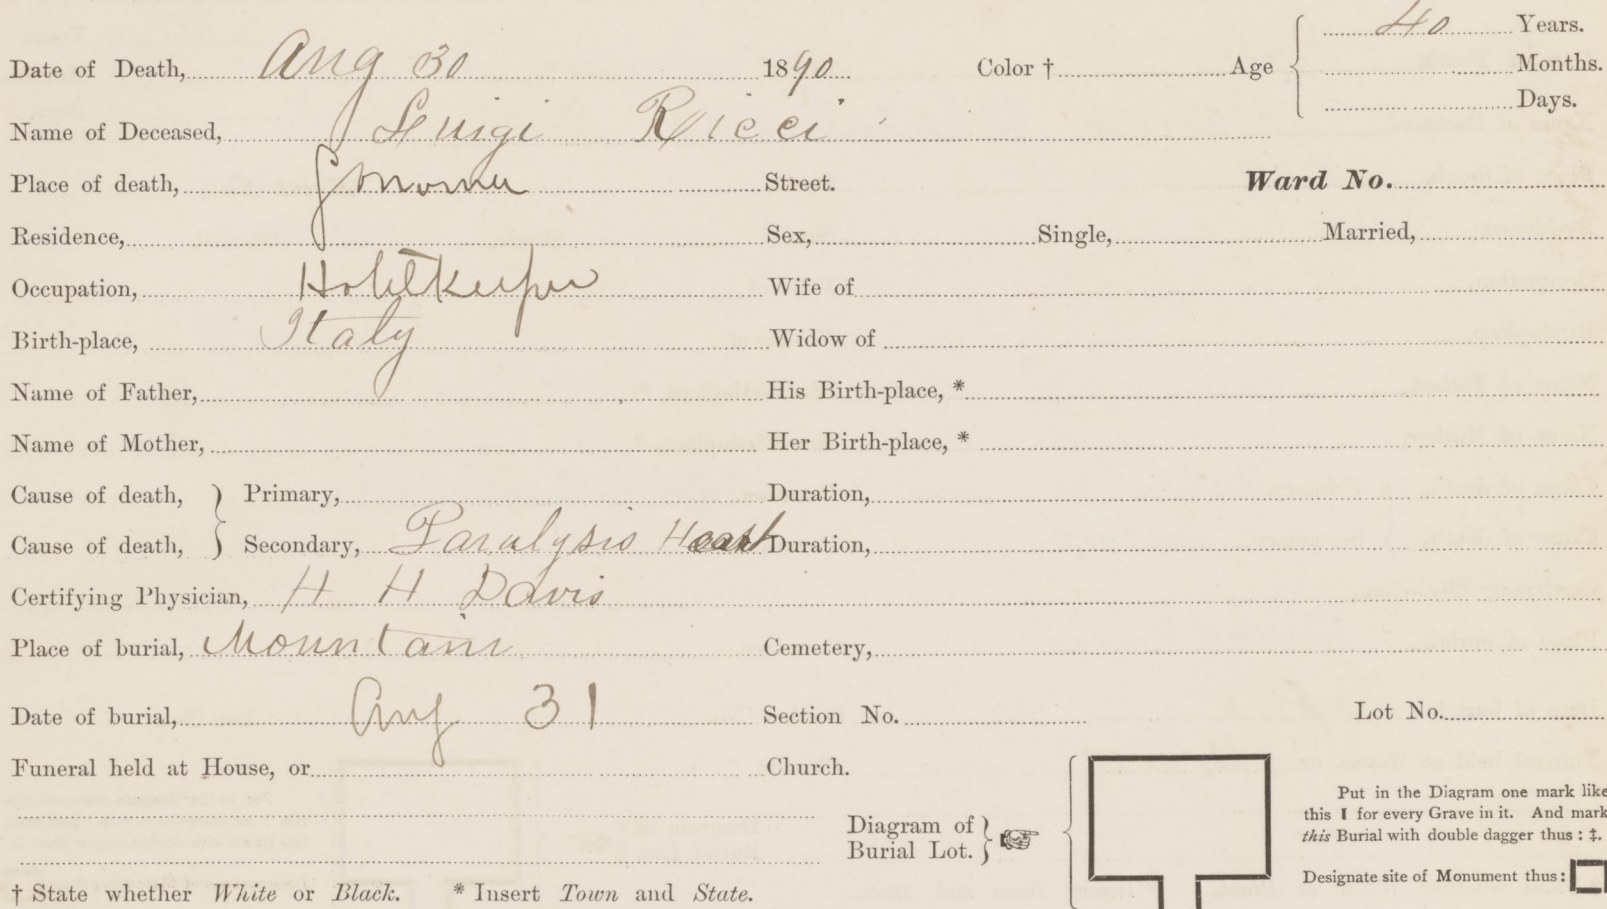 Date of Death, Aug 30 1890 Color † Age 40 Years.
Months.
Days.
Name of Deceased, Luigi Ricci
Place of death, Sonoma Street. Ward No.
Residence, Sex, Single, Married,
Occupation, Hotelkeeper Wife of
Birth-place, Italy Widow of
Name of Father, His Birth-place, *
Name of Mother, Her Birth-place, *
Cause of death, Primary, Duration,
Cause of death, Secondary, Paralysis Heart Duration,
Certifying Physician, H H Davis
Place of burial, Mountain Cemetery,
Date of burial, Aug 31 Section No. Lot No.
Funeral held at House, or Church.
Diagram of
Burial Lot.
Put in the Diagram one mark like
this I for every Grave in it. And mark
this Burial with double dagger thus : ‡.
Designate site of Monument thus :
† State whether White or Black. * Insert Town and State.